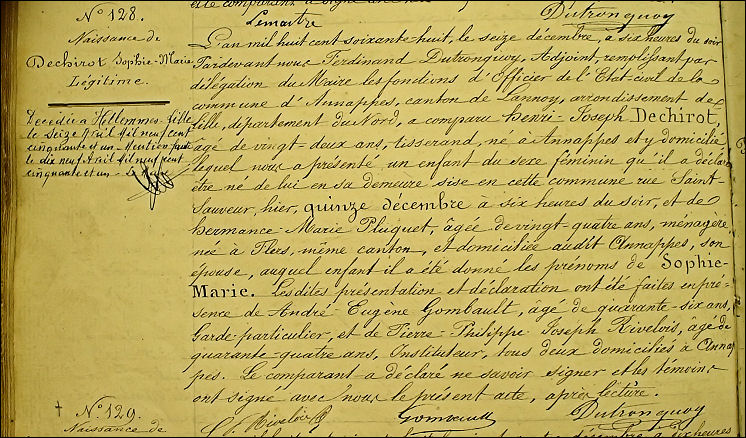 N° 128.
Naissance de
Dechirot Sophie-Marie
Légitime.
Décédée à Hellemmes-Lille
le seize Avril Mil neuf cent
cinquante et un - Mention faite
le dix neuf Avril Mil neuf cent
cinquante et un -
Lemaitre Dutronquoy
L'an mil huit cent soixante-huit, le seize décembre, à six heures du soir
Pardevant nous Ferdinand Dutronquoy, Adjoint, remplissant par
délégation du Maire les fonctions d'Officier de l'Etat-civil de la
commune d'Annappes, canton de Lannoy, arrondissement de
Lille, département du Nord, a comparu Henri-Joseph Dechirot,
âgé de vingt-deux ans, tisserand, né à Annappes et y domicilié
lequel nous a présenté un enfant du sexe féminin qu'il a déclaré
être né de lui en sa demeure sise en cette commune rue Saint-
Sauveur, hier, quinze décembre à six heures du soir, et de
Hermance Marie Pluquet, âgée de vingt-quatre ans, ménagère
née à Flers, même canton, et domiciliée audit Annappes, son
épouse, auquel enfant il a été donné les prénoms de Sophie-
Marie. Lesdites présentation et déclaration ont été faites en pré-
sence de André-Eugène Gombault, âgé de quarante-six ans,
Garde-particulier, et de Pierre-Philippe Joseph Rivelois, âgé de
quarante-quatre ans, Instituteur, tous deux domiciliés à Annap
pes. Le comparant a déclaré ne savoir signer et les témoins
ont signé avec nous le présent acte, après lecture.
Rivelois Gombault Dutronquoy
† N° 129.
Naissance de